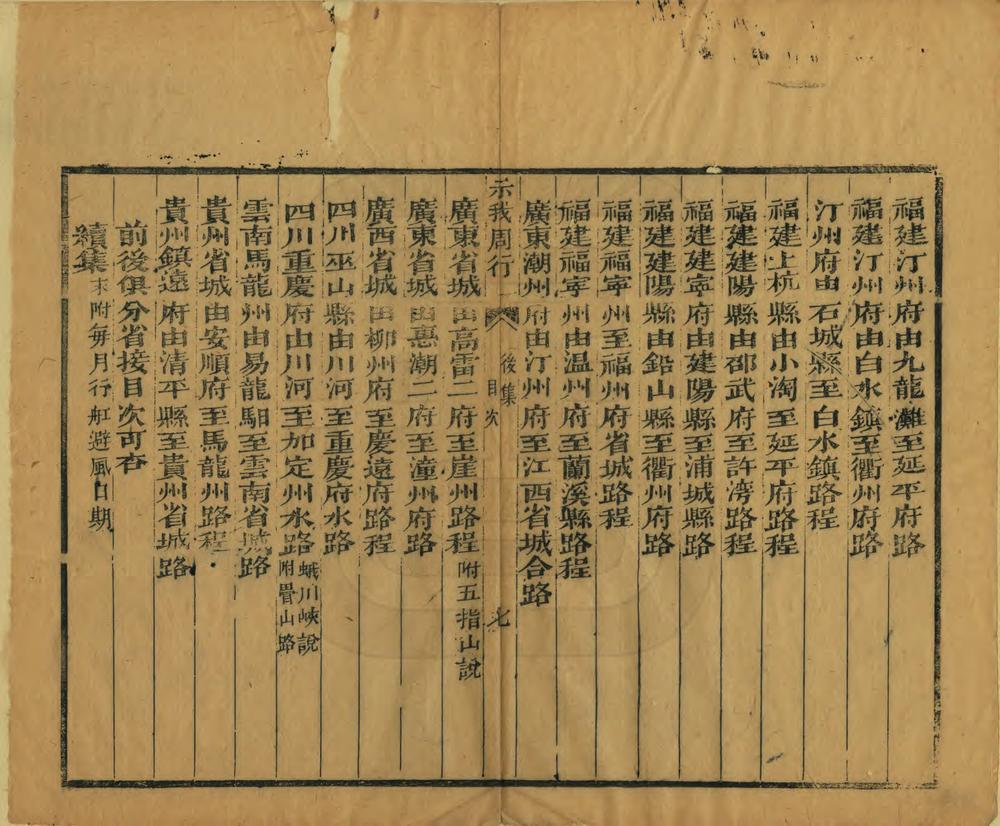 福建汀州府由九龍灘至延平府路
福建汀州府由白水鎮至衢州府路
汀州府由石城縣至白水鎮路程
福建上杭縣由小淘至延平府路程
福建建陽縣由邵武府至許灣路程
福建建寧府由建陽縣至浦城縣路
福建建陽縣由鉛山縣至衢州府路
福建福寧州至福州府省城路程
福建福寧州由温州府至蘭溪縣路程
廣東潮州府由汀州府至江西省城合路
示我周行
後集
目次
七
廣東省城由高雷二府至崖州路程附五指山說
廣東省城由惠潮二府至潼州府路
廣西省城由柳州府至慶遠府路程
四川巫山縣由川河至重慶府水路
四川重慶府由川河至加定州水路
蛾川峽說
附疊山路
雲南馬龍州由易龍馹至雲南省城路
貴州省城由安順府至馬龍州路程
貴州鎮遠府由清平縣至貴州省城路
前後俱分省接目次可查
續集末附每月行舡避風日期